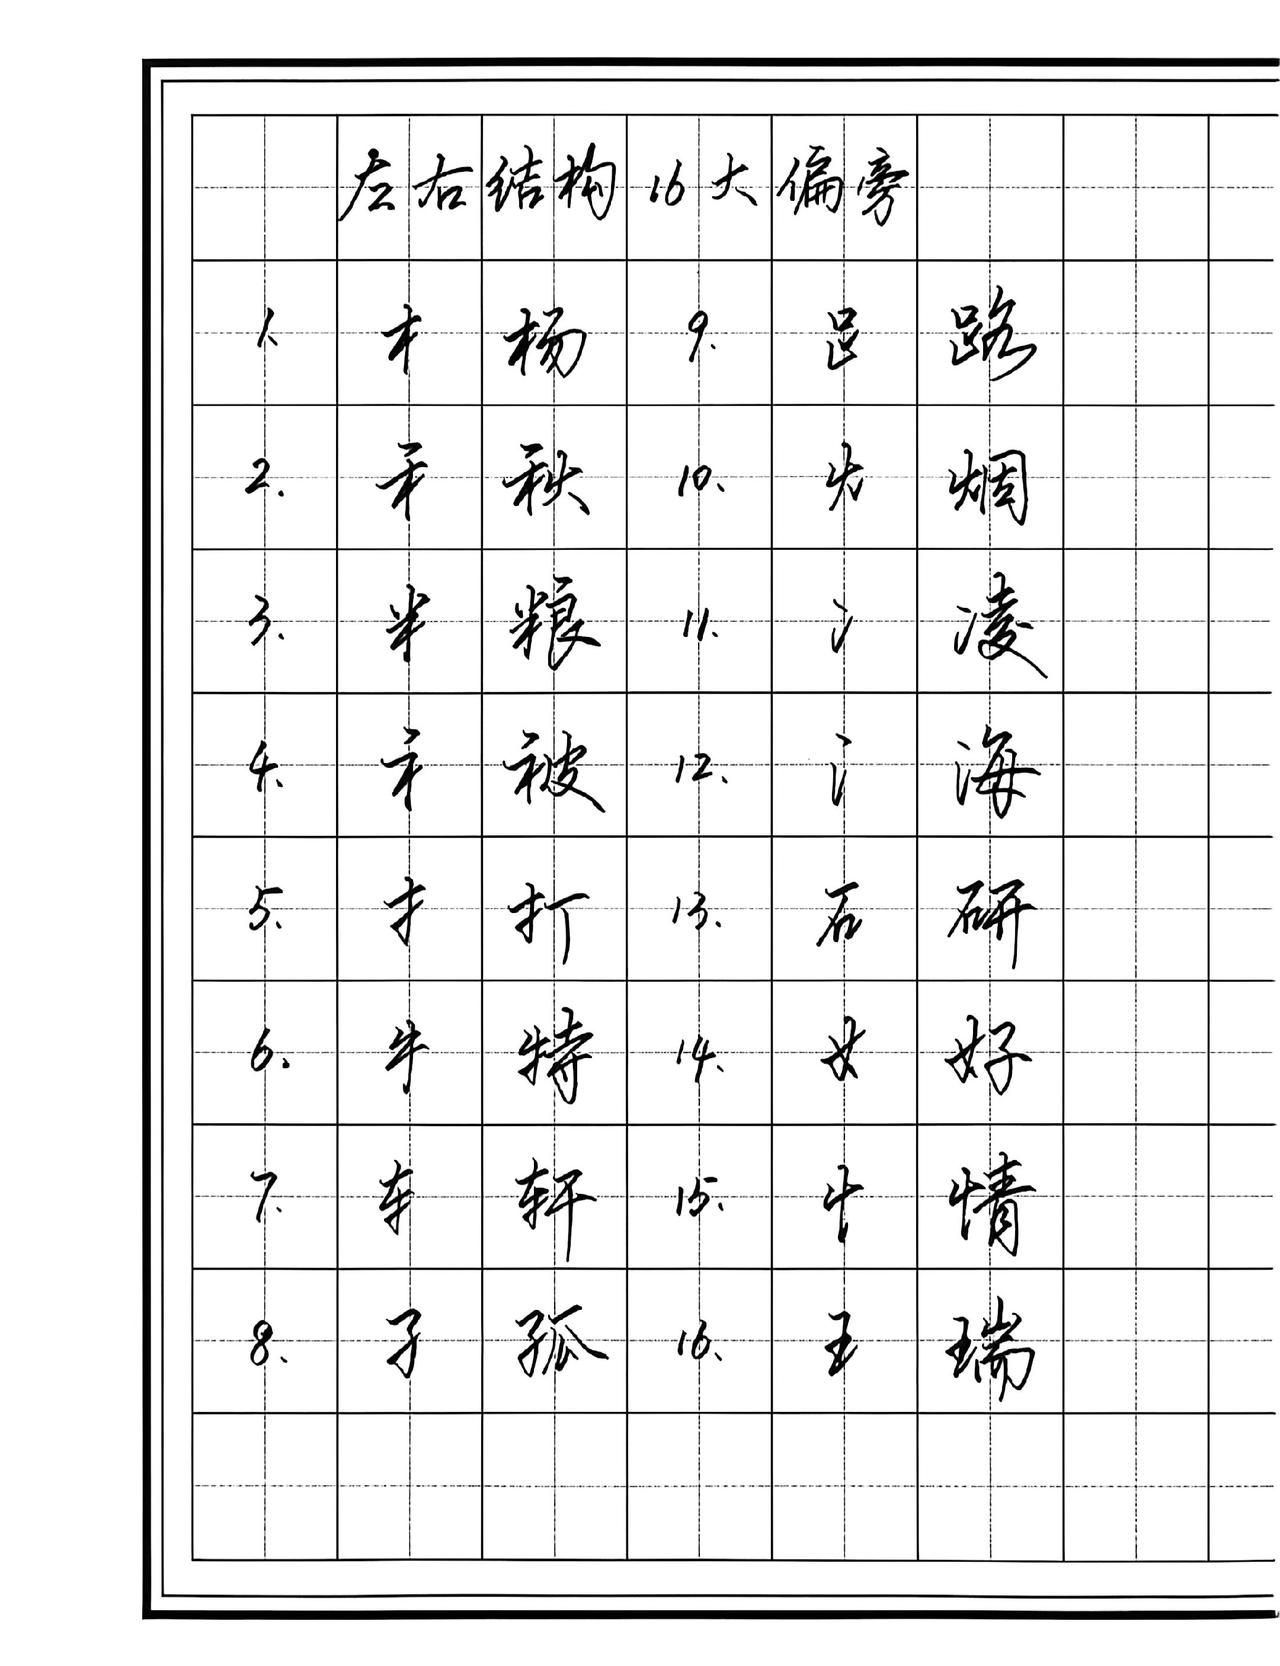 左右结构16大偏旁
1. 木 杨 9. 𧾷 路
2. 禾 秋 10. 火 烟
3. 米 粮 11. 冫 凌
4. 衤 被 12. 氵 海
5. 扌 打 13. 石 研
6. 牜 特 14. 女 好
7. 车 轩 15. 忄 情
8. 子 孤 16. 王 瑞